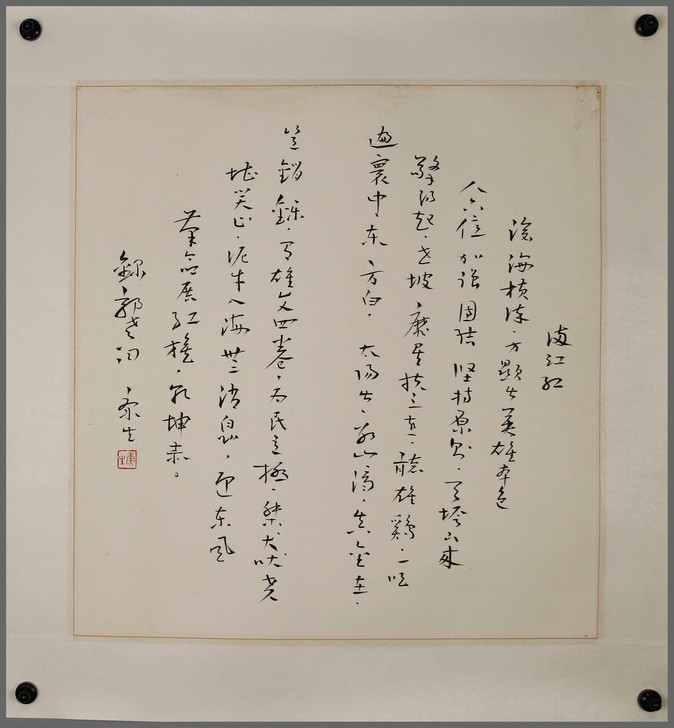 满江红
沧海横流，方顯出英雄本色
人六亿 加强團结 坚持原则，天垮下來
擎得起，世披靡矣扶之直，聽雄鷄一唱
遍寰中东方白，太陽出，冰山滴，真金在，
豈銷鑠，有雄文四卷，为民立極，桀犬吠尧
堪笑止，泥牛入海無消息，迎东風
革命展红旗，乾坤赤。
錄郭老詞，康生
康生